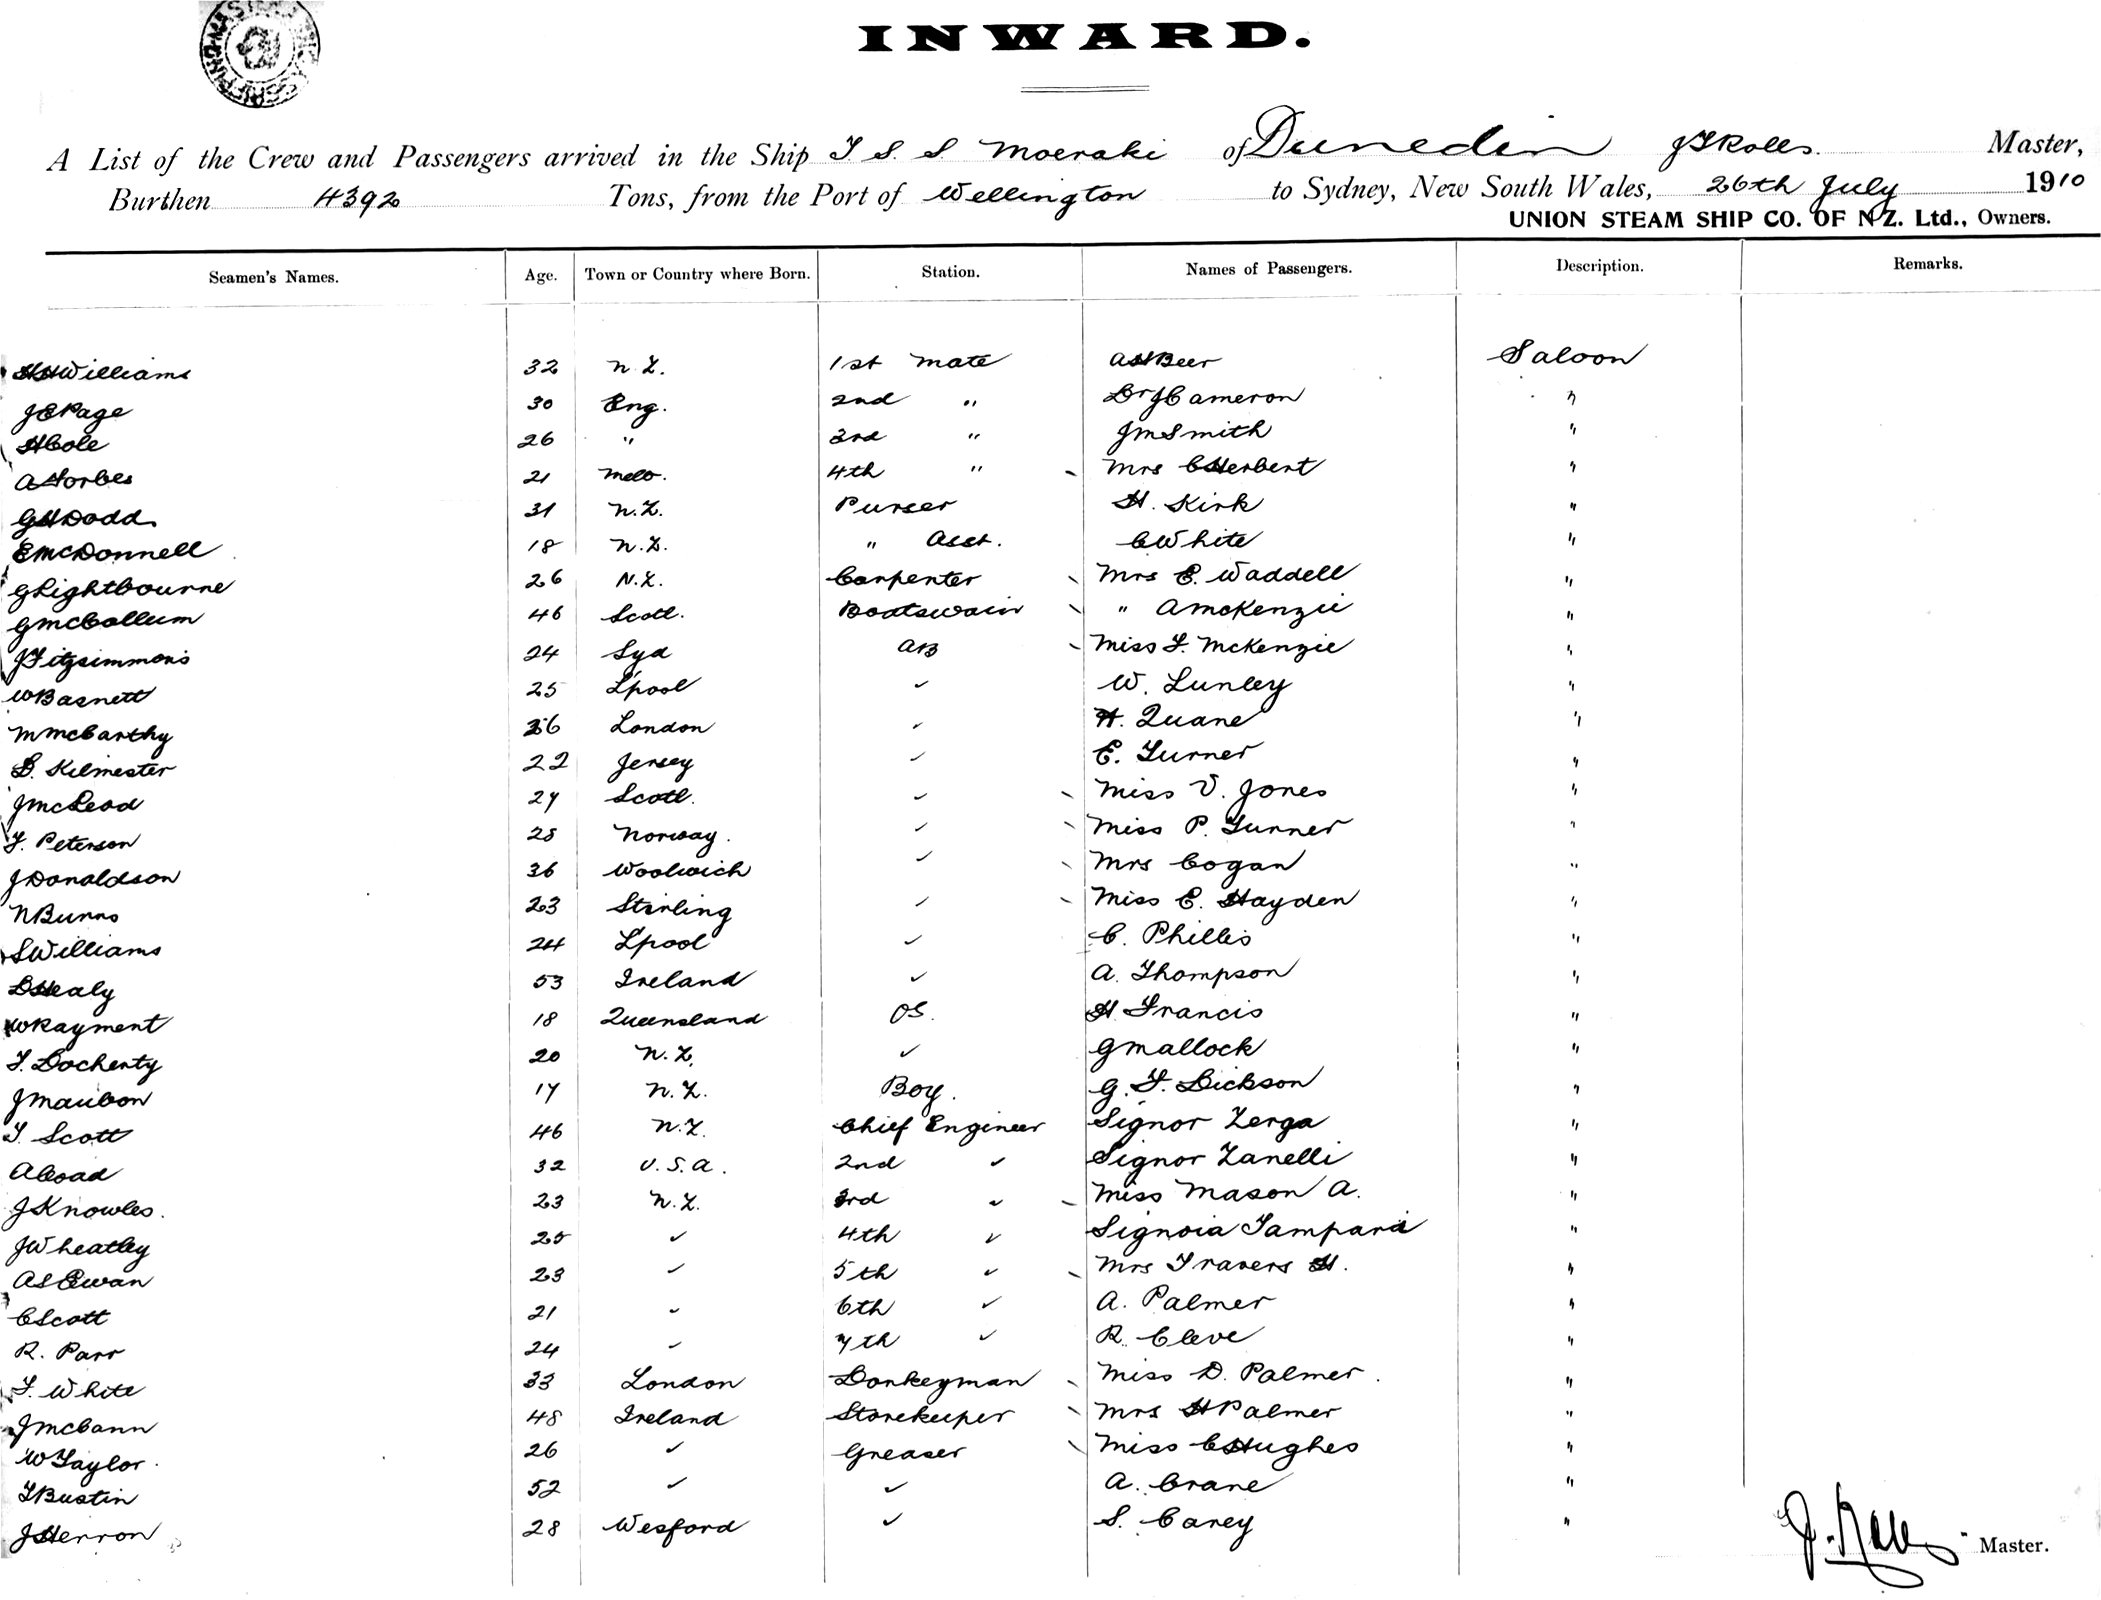 INWARD.
A List of the Crew and Passengers arrived in the Ship T S. S Moeraki of Dunedin J F Rolls. Master,
Burthen 4392 Tons, from the Port of Wellington to Sydney, New South Wales, 26th July 1910
UNION STEAM SHIP CO. OF N.Z. Ltd., Owners.
Seamen's Names. Age. Town or Country where Born. Station. Names of Passengers. Description. Remarks.
H H Williams 32 N.Z. 1st Mate A H Beer Saloon
J E Page 30 Eng. 2nd " Dr J Cameron "
H Cole 26 " 3rd " J M Smith "
A Forbes 21 Melb. 4th " Mrs C Herbert "
G H Dodd 31 N.Z. Purser H. Kirk "
E McDonnell 18 N.Z. " Asst. C White "
G Lightbourne 26 N.Z. Carpenter Mrs E. Waddell "
G McCollum 46 Scotl. Boatswain " A McKenzie "
J Fitzsimmons 24 Syd AB Miss F. McKenzie "
W Basnett 25 L'pool ✓ W. Lunley "
M McCarthy 36 London ✓ H. Quane "
Kilmester 22 Jersey ✓ E. Turner "
J McLeod 27 Scotl. ✓ Miss V. Jones "
F. Peterson 28 Norway. ✓ Miss P. Turner "
J Donaldson 36 Woolwich ✓ Mrs Cogan "
N Burns 23 Stirling ✓ Miss E. Hayden "
S Williams 24 L'pool ✓ C. Phillis "
D Healy 53 Ireland ✓ A. Thompson "
W Rayment 18 Queensland OS. H Francis "
T. Docherty 20 N.Z. ✓ G Mallock "
J Maubon 17 N.Z. Boy. G. F. Dickson "
T. Scott 46 N.Z. Chief Engineer Signor Zerga "
A Coad 32 U.S.A. 2nd ✓ Signor Zanelli "
J Knowles. 23 N.Z. 3rd ✓ Miss Mason A. "
J Wheatley 25 ✓ 4th ✓ Signoia Tampari "
A S Ewan 23 ✓ 5th ✓ Mrs Travers H. "
C Scott 21 ✓ 6th ✓ A. Palmer "
R. Parr 24 ✓ 7th ✓ R. Cleve "
F. White 33 London Donkeyman Miss D. Palmer. "
J McCann 48 Ireland Storekeeper Mrs H Palmer "
W Taylor. 26 ✓ Greaser Miss C Hughes "
T Bustin 52 ✓ ✓ A. Crane "
J Herron 28 Wexford ✓ S. Carey "
J. Rolls Master.